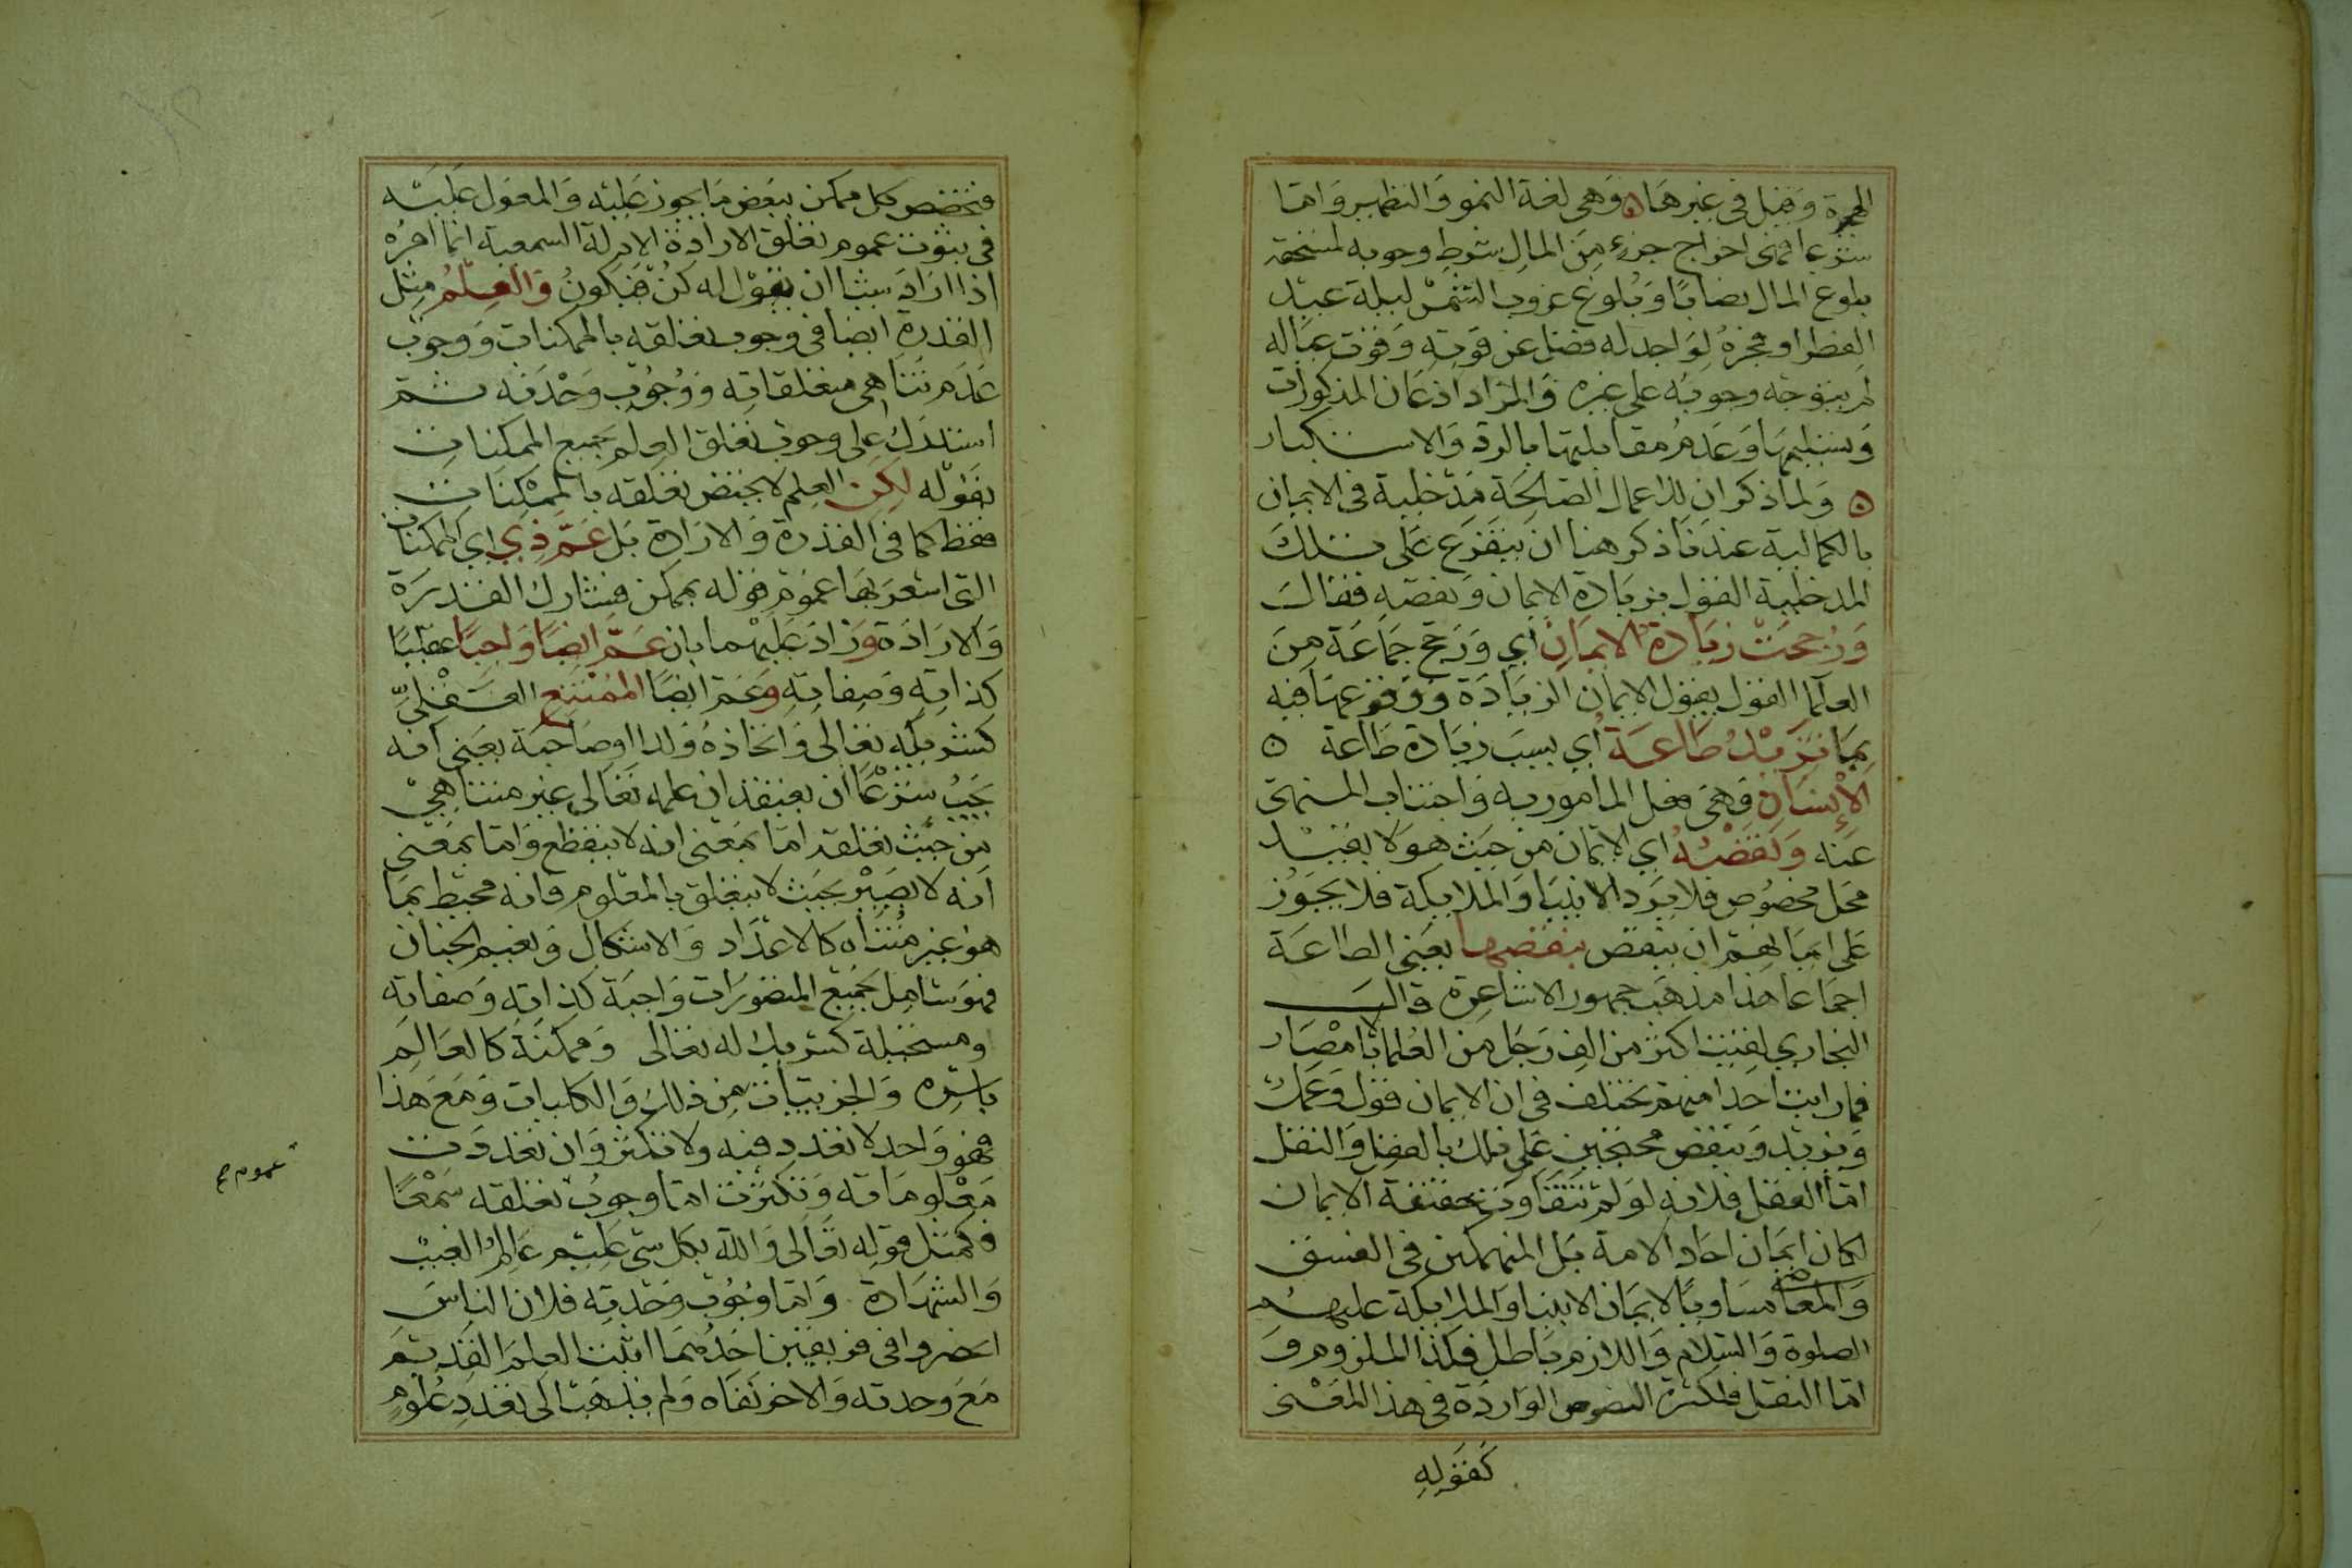 الهجرة وقيل في غيرها وهي لغة النمو والتطهير واما
شرعا فهى اخراج جزء من المال شرط وجوبه لمستحقه
بلوغ المال نصابا وبلوغ غروب الشمس ليلة عيد
الفطر او فجره لواجد له فضل عن قوته وقوت عياله
لم يتوجه وجوبه على غيره والمراد اذعان المذكورات
وتسليمها وعدم مقابلتها بالرد والاستكبار
ولما ذكر ان للاعمال الصالحة مدخلية في الايمان
بالكمالية عندنا ذكر هنا ان يتفرع على تلك
المدخلية القول بزيادة الايمان ونقصه فقال
ورجحت زيادة الايمان اي ورجح جماعة من
العلما القول بقبول الايمان الزيادة ووقوعها فيه
بما تزيد طاعة اي بسبب زيادة طاعة
الإنسان وهي فعل المامور به واجتناب المنهى
عنه ونقصه اي الايمان من حيث هو لا بقيد
محل مخصوص فلا يرد الانبيا والملايكة فلا يجوز
على ايمانهم ان ينقص بنقصها يعني الطاعة
اجماعا هذا مذهب جمهور الاشاعرة قال
البخاري لقيت اكثر من الف رجل من العلما بالامصار
فما رايت احدا منهم يختلف في ان الايمان قول وعمل
ويزيد وينقص محتجين على ذلك بالعقل والنقل
اما العقل فلانه لو لم تتفاوت حقيقة الايمان
لكان ايمان احاد الامة بل المنهمكين في الفسق
والمعاصي مساويا لايمان الانبيا والملايكة عليهم
الصلوة والسلام واللازم باطل فكذا الملزوم و
اما النقل فلكثرة النصوص الواردة في هذا المعنى
كقوله
فتخصص كل ممكن ببعض ما يجوز عليه والمعول عليه
في ثبوت عموم تعلق الارادة الادلة السمعية انما امره
اذا اراد شيئا ان يقول له كن فيكون والعلم مثل
القدرة ايضا في وجوب تعلقه بالممكنات ووجوب
عدم تناهي متعلقاته ووجوب وحدته ثم
استدرك على وجوب تعلق العلم بجميع الممكنات
بقوله لكن العلم لا يختص تعلقه بالممكنات
فقط كما في القدرة والارادة بل عم ذي اي الممكنات
التي اشعر بها عموم قوله بممكن فشارك القدرة
والارادة وزاد عليهما بان عم ايضا واجبا عقليا
كذاته وصفاته وعم ايضا الممتنع العقلي
كشريكه تعالى واتخاذه ولدا او صاحبة يعني انه
يجب شرعا ان يعتقد ان علمه تعالى غير متناهي
من حيث تعلقه اما بمعنى انه لا ينقطع واما بمعنى
انه لا يصير بحيث لا يتعلق بالمعلوم فانه محيط بما
هو غير متناه كالاعداد والاشكال ونعيم الجنان
فهو شامل لجميع المتصورات واجبة كذاته وصفاته
ومستحيلة كشريك له تعالى وممكنة كالعالم
باسره والجزييات من ذلك والكليات ومع هذا
فهو واحد لا تعدد فيه ولا تكثر وان تعددت
معلوماته وتكثرت اما وجوب تعلقه سمعا
فكمثل قوله تعالى والله بكل شي عليم عالم الغيب
والشهادة واما وجوب وحدته فلان الناس
انحصروا في فريقين احدهما اثبت العلم القديم
مع وحدته والاخر نفاه ولم يذهب الى تعدد علوم
عموم